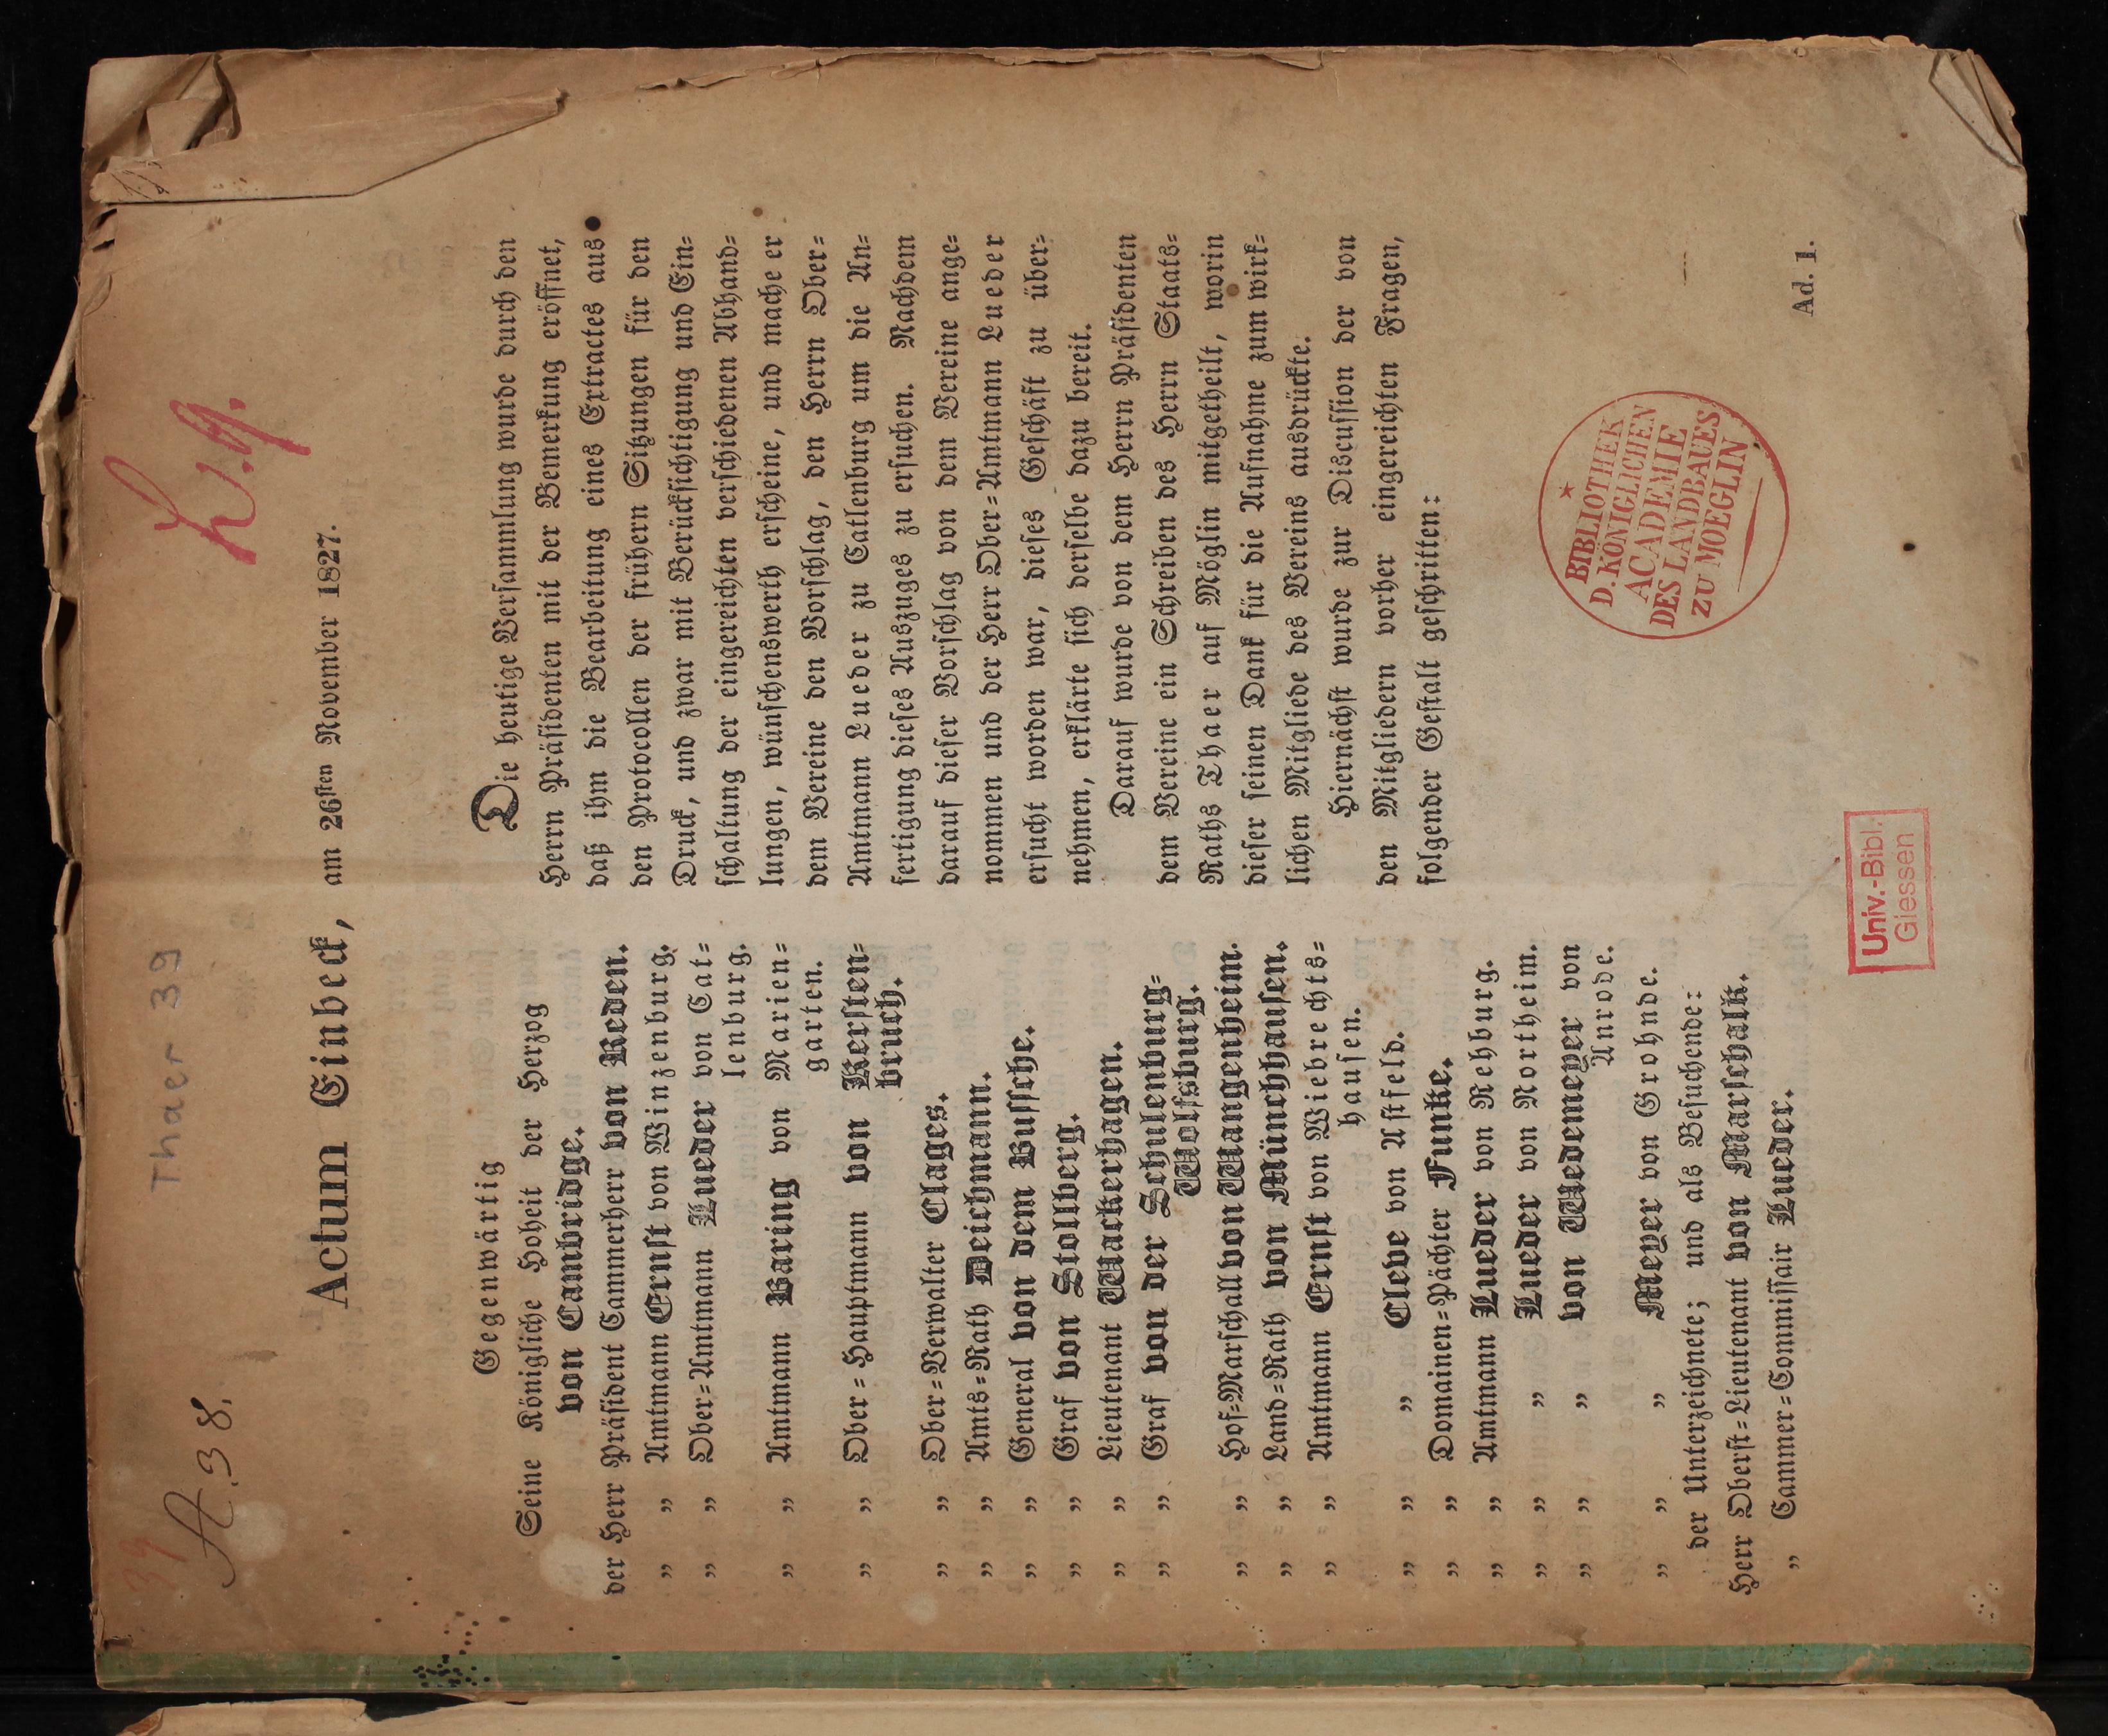 39
A. 38.
Thaer 39
L. g.
Actum Einbeck, am 26sten November 1827.
Gegenwärtig
Seine Königliche Hoheit der Herzog
von Cambridge.
der Herr Präsident Cammerherr von Reden.
„ „ Amtmann Ernst von Winzenburg.
„ „ Ober=Amtmann Lueder von Cat=
lenburg.
„ „ Amtmann Baring von Marien=
garten.
„ „ Ober=Hauptmann von Kersten=
bruch.
„ „ Ober=Verwalter Clages.
„ „ Amts=Rath Deichmann.
„ „ General von dem Bussche.
„ „ Graf von Stollberg.
„ „ Lieutenant Wackerhagen.
„ „ Graf von der Schulenburg=
Wolfsburg.
„ „ Hof=Marschall von Wangenheim.
„ „ Land=Rath von Münchhausen.
„ „ Amtmann Ernst von Wiebrechts=
hausen.
„ „ „ Cleve von Astfeld.
„ „ Domainen=Pächter Funke.
„ „ Amtmann Lueder von Rehburg.
„ „ „ Lueder von Northeim.
„ „ „ von Wedemeyer von
Anrode.
„ „ „ Meyer von Grohnde.
der Unterzeichnete; und als Besuchende:
Herr Oberst=Lieutenant von Marschalk.
„ Cammer=Commissair Lueder.
Die heutige Versammlung wurde durch den
Herrn Präsidenten mit der Bemerkung eröffnet,
daß ihm die Bearbeitung eines Extractes aus
den Protocollen der frühern Sitzungen für den
Druck, und zwar mit Berücksichtigung und Ein=
schaltung der eingereichten verschiedenen Abhand=
lungen, wünschenswerth erscheine, und mache er
dem Vereine den Vorschlag, den Herrn Ober=
Amtmann Lueder zu Catlenburg um die An=
fertigung dieses Auszuges zu ersuchen. Nachdem
darauf dieser Vorschlag von dem Vereine ange=
nommen und der Herr Ober=Amtmann Lueder
ersucht worden war, dieses Geschäft zu über=
nehmen, erklärte sich derselbe dazu bereit.
Darauf wurde von dem Herrn Präsidenten
dem Vereine ein Schreiben des Herrn Staats=
Raths Thaer auf Möglin mitgetheilt, worin
dieser seinen Dank für die Aufnahme zum wirk=
lichen Mitgliede des Vereins ausdrückte.
Hiernächst wurde zur Discussion der von
den Mitgliedern vorher eingereichten Fragen,
folgender Gestalt geschritten:
BIBLIOTHEK
D. KÖNIGLICHEN
ACADEMIE
DES LANDBAUES
ZU MOEGLIN
Ad. 1.
Univ.-Bibl.
Giessen